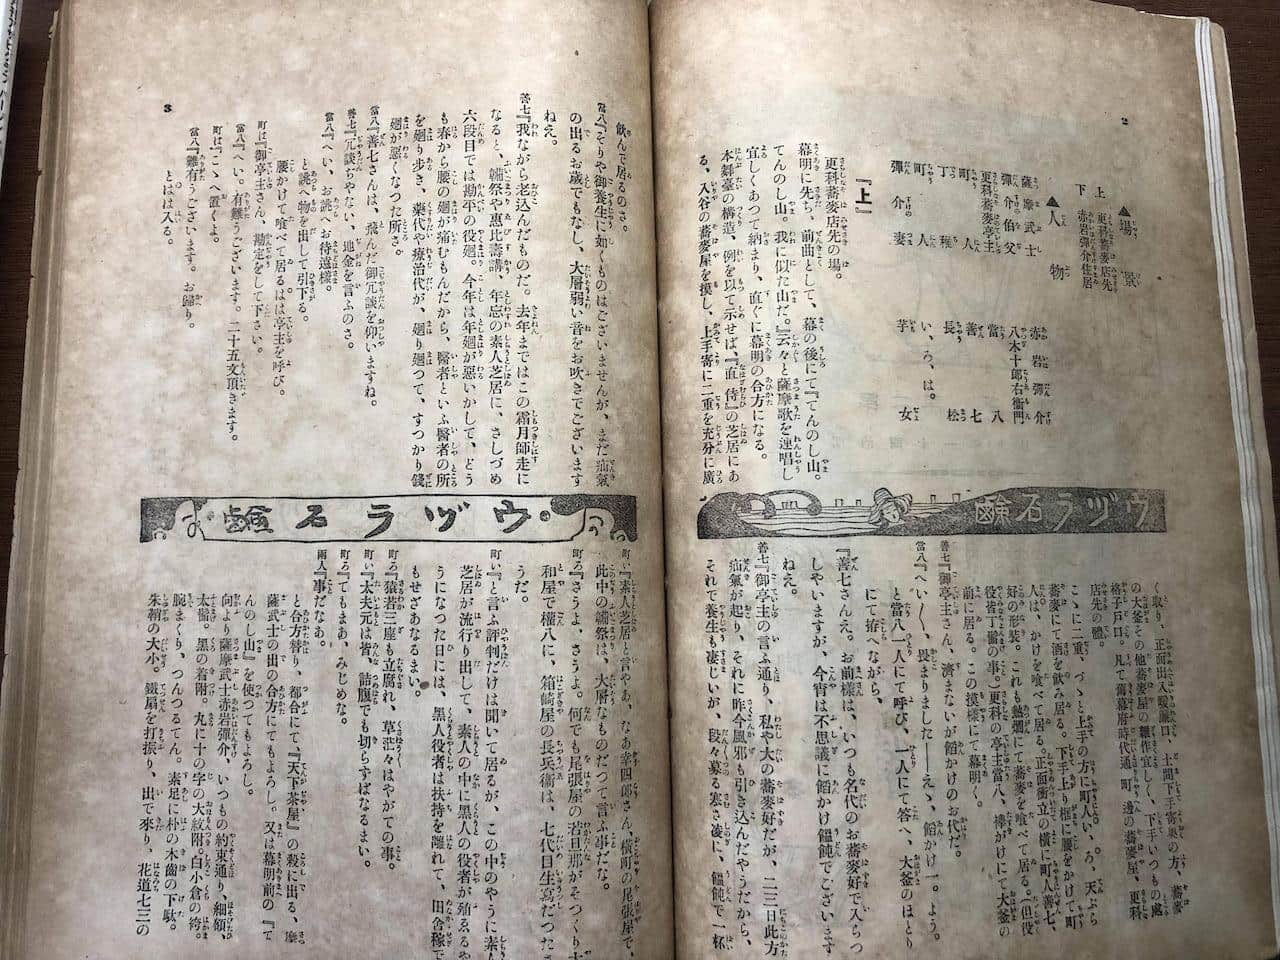 2
▲場景
上 更科蕎麥店先
下 赤岩彈介住居
▲人物
薩摩武士 赤岩彈介
彈介伯父 八木十郎右衞門
更科蕎麥亭主 當八
町人 善七
丁稚 長松
町人 い、ろ、は。
彈介妻 芋女
『上』
更科蕎麥店先の場。
幕明に先ち、前曲として、幕の後にて『てんのし山。
てんのし山。我に似た山だ。』云々と薩摩歌を連唱し
宜しくあつて納まり、直ぐに幕明の合方になる。
本舞臺の構造、例を以て示せば、『直侍』の芝居にあ
る、入谷の蕎麥屋を摸し、上手寄に二重を充分に廣
ウヅラ石鹼
く取り、正面出入暖簾口、土間下手寄裏の方、蕎麥
の大釜その他蕎麥屋の雜作宜しく、下手いつもの處
格子戸口。凡て舊幕府時代通り町邊の蕎麥屋、更科
店先の體。
こゝに二重、づゝと上手の方に町人い、ろ、天ぷら
蕎麥にて酒を飮み居る。下手上り框に腰をかけて町
人は、かけを喰べて居る。正面衝立の橫に町人善七、
好の形裝。これも熱燗にて蕎麥を喰べて居る。（但役
役皆丁髷の事。更科の亭主當八、襷がけにて大釜の
前に居る。この摸樣にて幕明く。
善七『御亭主さん、濟まないが餡かけのお代だ。
當八『へい〱、畏まりました――えゝ、餡かけ一。よう。
と當八一人にて呼び、一人にて答へ、大釜のほとり
にて拵へながら、
『善七さんえ。お前樣は、いつも名代のお蕎麥好で入らつ
しやいますが、今宵は不思議に餡かけ饂飩でございます
ねえ。
善七『御亭主の言ふ通り、私や大の蕎麥好だが、二三日此方
疝氣が起り、それに昨今風邪も引き込んだやうだから、
それで養生も凄じいが、段々募る寒さ凌に、饂飩で一杯
飮んで居るのさ。
當八『そりや御養生に如くものはございませんが、まだ疝氣
の出るお歲でもなし、大層弱い音をお吹きでございます
ねえ。
善七『我ながら老込んだものだ。去年まではこの霜月師走に
なると、鞴祭や惠比壽講、年忘の素人芝居に、さしづめ
六段目では勘平の役廻。今年は年廻が惡いかして、どう
も春から腰の廻が痛むもんだから、醫者といふ醫者の所
を廻り步き、藥代や療治代が、廻り廻つて、すつかり錢
廻が惡くなつた所さ。
當八『善七さんは、飛んだ御冗談を仰いますね。
善七『冗談ぢやない、地金を言ふのさ。
當八『へい、お誂へお待遠樣。
と誂へ物を出して引下る。
腰かけて喰べて居るは亭主を呼び。
町は『御亭主さん、勘定をして下さい。
當八『へい。有難うございます。二十五文頂きます。
町は『こゝへ置くよ。
當八『難有うございます。お歸り。
とはは入る。
3
ウヅラ石鹼
町い『素人芝居と言やあ、なあ幸四郎さん、橫町の尾張屋で、
此中の鞴祭は、大層なものだつて言ふ事だな。
町ろ『さうよ、さうよ。何でも尾張屋の若旦那がそつくり大
和屋で權八に、箱崎屋の長兵衞は、七代目生寫だつたさ
うだ。
町い『と言ふ評判だけは聞いて居るが、この中のやうに素人
芝居が流行り出して、素人の中に黑人の役者が殖ゑるや
うになつた日には、黑人役者は扶持を離れて、田舍稼で
もせざあなるまい。
町ろ『猿若三座も立腐れ、草茫々はやがての事。
町い『太夫元は皆、詰腹でも切らずばなるまい。
町ろ『てもまあ、みじめな。
兩人『事だなあ。
と合方替り、都合にて、『天下茶屋』の殺に出る、薩
薩武士の出の合方にてもよろし。又は幕明前の『て
んのし山』を使つてもよろし。
向より薩摩武士赤岩彈介、いつもの約束通り、細額、
太髷、黑の着附。丸に十の字の大紋附、白小倉の袴。
腕まくり、つんつるてん。素足に朴の木齒の下駄。
朱鞘の大小。鐵扇を打振り、出で來り、花道七三の